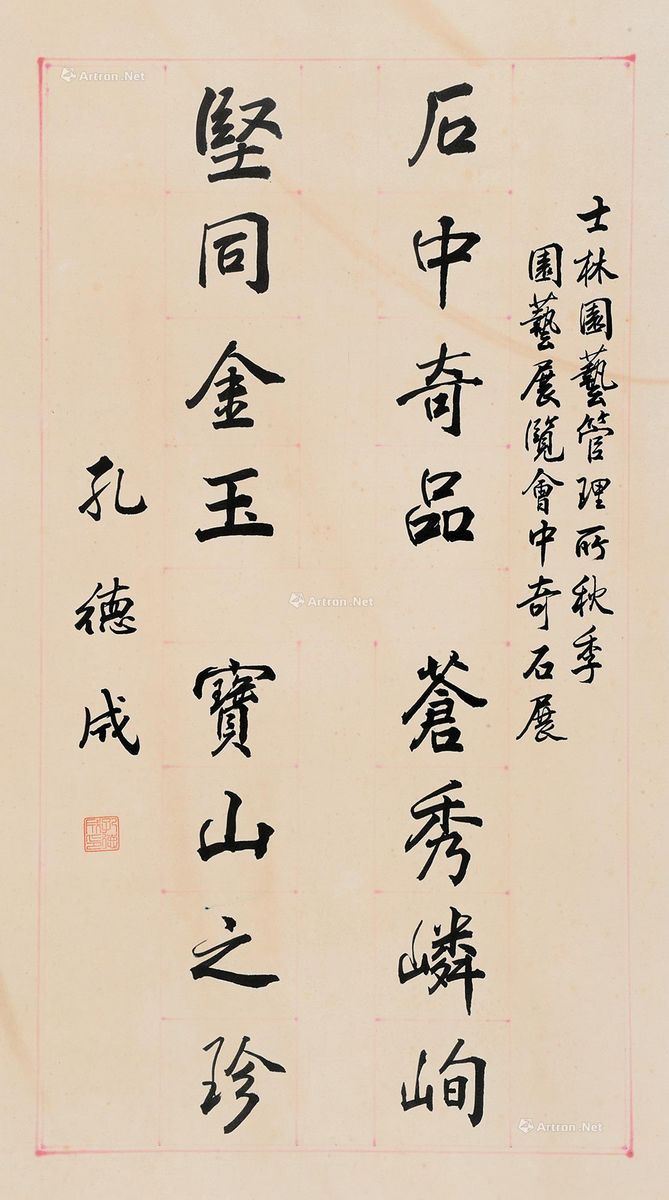 士林園藝管理所秋季
園藝展覽會中奇石展
石中奇品 蒼秀嶙峋
堅同金玉 寶山之珍
孔德成
孔德成印
Artron.Net
Artron.Net
Artron.Net